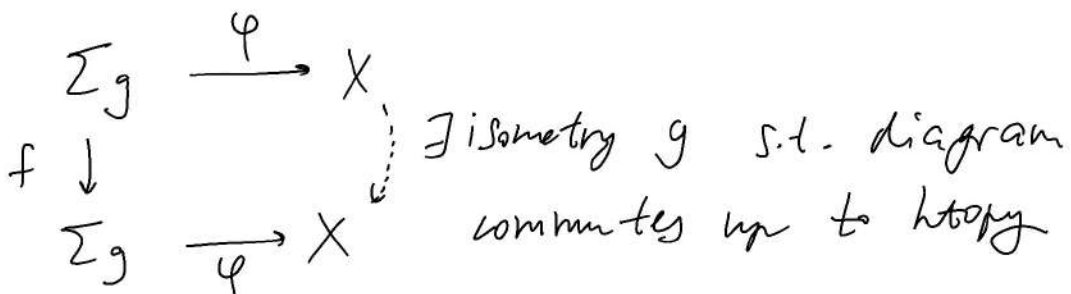 Σg φ X
f ∃ isometry g s.t. diagram
Σg φ X commutes up to htopy